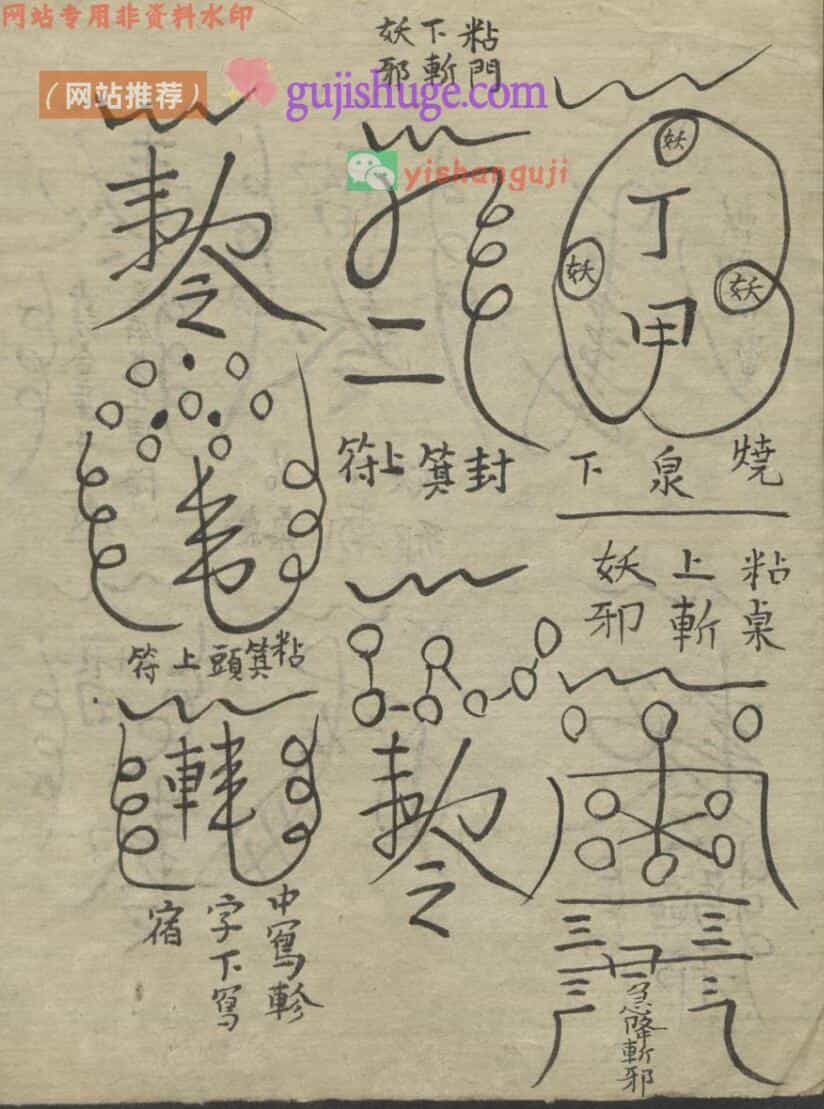 网站专用非资料水印
（网站推荐）
gujishuge.com
yishanguji
粘門
下斬
妖邪
妖
丁
妖
妖
甲
燒泉下
二
封箕上符
粘箕頭上符
粘桌
上斬
妖邪
中寫軫
字下寫
宿
三
三
三
三
急降斬邪